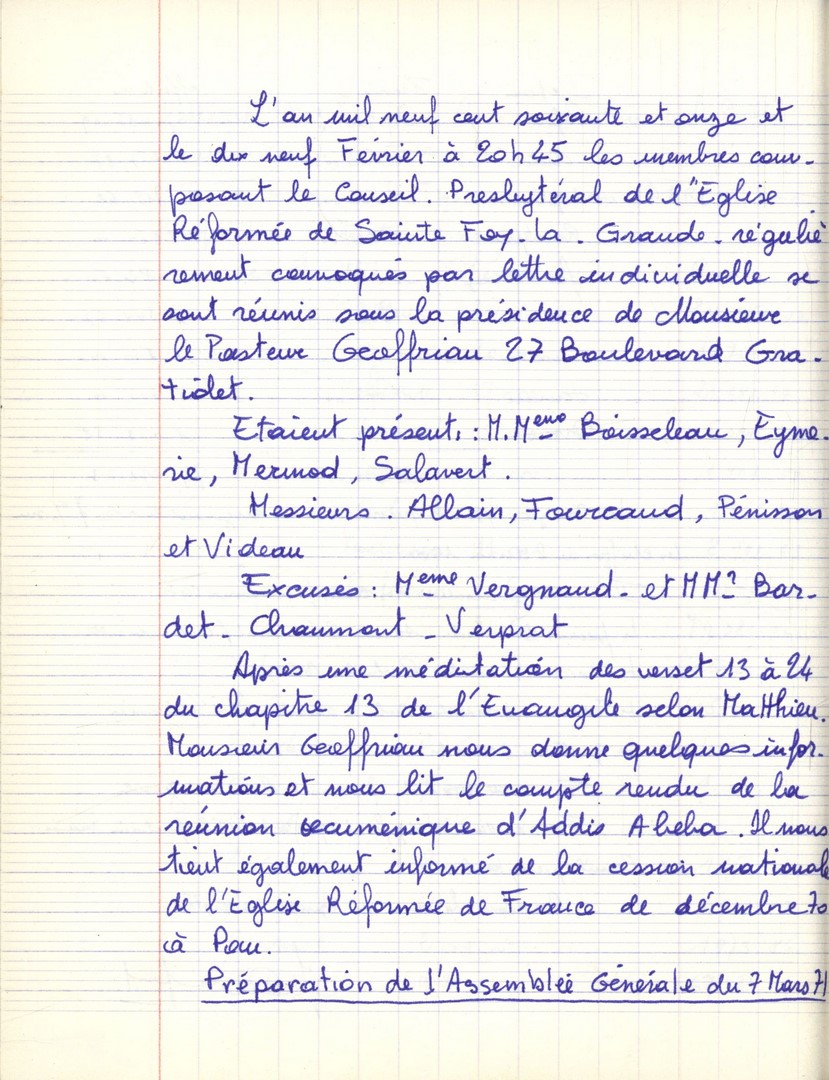 L'an mil neuf cent soixante et onze et
le dix neuf Février à 20h45 les membres com-
posant le Conseil. Presbytéral de l'Eglise
Réformée de Sainte Foy-la. Grande. réguliè
rement convoqués par lettre individuelle se
sont réunis sous la présidence de Monsieur
le Pasteur Geoffriau 27 Boulevard Gra-
tiolet.
Etaient présent, : M.Meme Boisseleau, Eyme-
rie, Mermod, Salavert.
Messieurs. Allain, Fourcaud, Pénisson
et Videau
Excusés : Meme Vergnaud- et MM? Bar-
det- Chaumont - Verprat
Après une méditation des verset 13 à 24
du chapitre 13 de l'Evangile selon Matthieu.
Monsieur Geoffriau nous donne quelques infor-
mations et nous lit le compte rendu de la
reunion oecuménique d'Addis Abeba. Il nous
tient également informé de la cession national
de l'Eglise Réformée de France de décembre 70
à Pau.
Préparation de l'Assemblée Générale du 7 Mars 71